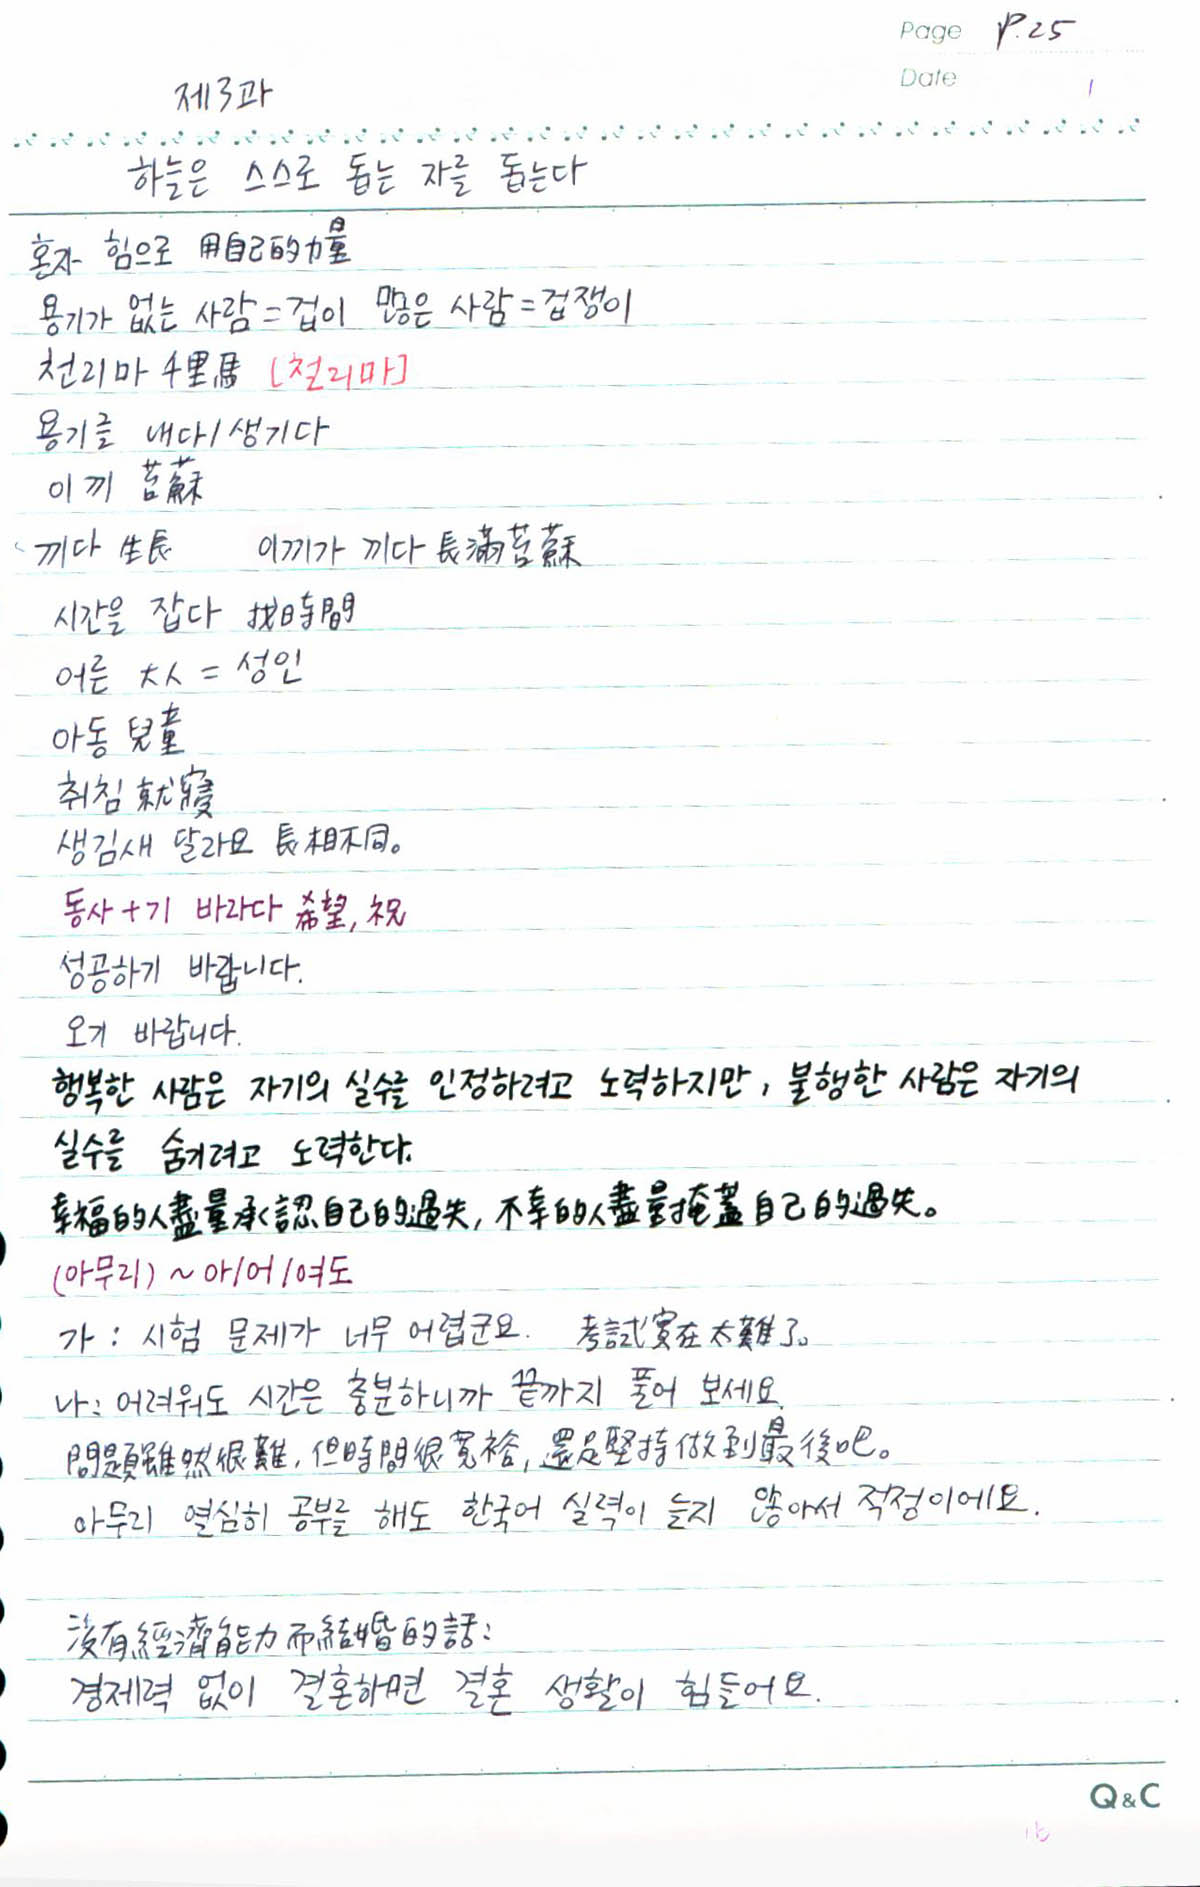 Page P.25
Date 1
제3과
하늘은 스스로 돕는 자를 돕는다
혼자 힘으로 用自己的力量
용기가 없는 사람=겁이 많은 사람=겁쟁이
천리마 千里馬 [철리마]
용기를 내다/생기다
이끼 苔蘇
끼다 生長 이끼가 끼다 長滿苔蘇
시간을 잡다 找時間
어른 大人 = 성인
아동 兒童
취침 就寢
생김새 달라요 長相不同。
동사+기 바라다 希望,祝
성공하기 바랍니다.
오기 바랍니다.
행복한 사람은 자기의 실수를 인정하려고 노력하지만, 불행한 사람은 자기의
실수를 숨기려고 노력한다.
幸福的人盡量承認自己的過失,不幸的人盡量掩蓋自己的過失。
(아무리) ~아/어/여도
가: 시험 문제가 너무 어렵군요. 考試實在太難了。
나: 어려워도 시간은 충분하니까 끝까지 풀어 보세요.
問題雖然很難,但時間很寬裕,還是堅持做到最後吧。
아무리 열심히 공부를 해도 한국어 실력이 늘지 않아서 걱정이에요.
沒有經濟能力而結婚的話:
경제력 없이 결혼하면 결혼 생활이 힘들어요.
Q&C